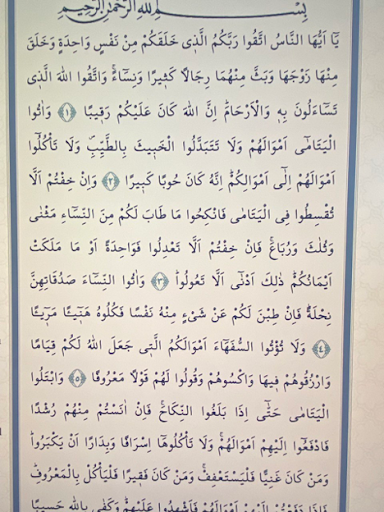 بِسْــــمِ اللّٰهِ الرَّحْمٰنِ الرَّح۪يمِ
يَٓا اَيُّهَا النَّاسُ اتَّقُوا رَبَّكُمُ الَّذ۪ي خَلَقَكُمْ مِنْ نَفْسٍ وَاحِدَةٍ وَخَلَقَ
مِنْهَا زَوْجَهَا وَبَثَّ مِنْهُمَا رِجَالًا كَث۪يرًا وَنِسَٓاءًۚ وَاتَّقُوا اللّٰهَ الَّذ۪ي
تَسَٓاءَلُونَ بِه۪ وَالْاَرْحَامَۜ اِنَّ اللّٰهَ كَانَ عَلَيْكُمْ رَق۪يبًا ﴿١﴾ وَاٰتُوا
الْيَتَامٰٓى اَمْوَالَهُمْ وَلَا تَتَبَدَّلُوا الْخَب۪يثَ بِالطَّيِّبِۖ وَلَا تَأْكُلُٓوا
اَمْوَالَهُمْ اِلٰٓى اَمْوَالِكُمْۜ اِنَّهُ كَانَ حُوبًا كَب۪يرًا ﴿٢﴾ وَاِنْ خِفْتُمْ اَلَّا
تُقْسِطُوا فِي الْيَتَامٰى فَانْكِحُوا مَا طَابَ لَكُمْ مِنَ النِّسَٓاءِ مَثْنٰى
وَثُلٰثَ وَرُبَاعَۚ فَاِنْ خِفْتُمْ اَلَّا تَعْدِلُوا فَوَاحِدَةً اَوْ مَا مَلَكَتْ
اَيْمَانُكُمْۜ ذٰلِكَ اَدْنٰٓى اَلَّا تَعُولُواۜ ﴿٣﴾ وَاٰتُوا النِّسَٓاءَ صَدُقَاتِهِنَّ
نِحْلَةًۜ فَاِنْ طِبْنَ لَكُمْ عَنْ شَيْءٍ مِنْهُ نَفْسًا فَكُلُوهُ هَن۪ٓيـًٔا مَر۪ٓيـًٔا
﴿٤﴾ وَلَا تُؤْتُوا السُّفَهَٓاءَ اَمْوَالَكُمُ الَّت۪ي جَعَلَ اللّٰهُ لَكُمْ قِيَامًا
وَارْزُقُوهُمْ ف۪يهَا وَاكْسُوهُمْ وَقُولُوا لَهُمْ قَوْلًا مَعْرُوفًا ﴿٥﴾ وَابْتَلُوا
الْيَتَامٰى حَتّٰٓى اِذَا بَلَغُوا النِّكَاحَۚ فَاِنْ اٰنَسْتُمْ مِنْهُمْ رُشْدًا
فَادْفَعُٓوا اِلَيْهِمْ اَمْوَالَهُمْۚ وَلَا تَأْكُلُوهَٓا اِسْرَافًا وَبِدَارًا اَنْ يَكْبَرُواۜ
وَمَنْ كَانَ غَنِيًّا فَلْيَسْتَعْفِفْۚ وَمَنْ كَانَ فَق۪يرًا فَلْيَأْكُلْ بِالْمَعْرُوفِۜ
فَاِذَا دَفَعْتُمْ اِلَيْهِمْ اَمْوَالَهُمْ فَاَشْهِدُوا عَلَيْهِمْۜ وَكَفٰى بِاللّٰهِ حَس۪يبًا